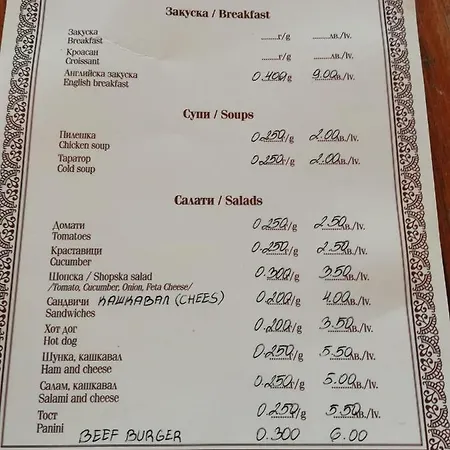 Закуска / Breakfast
Закуска ..........г/g ..........лв./lv.
Breakfast
Кроасан ..........г/g ..........лв./lv.
Croissant
Английска закуска 0.400г/g 9.00лв./lv.
English breakfast
Супи / Soups
Пилешка 0.250г/g 2.00лв./lv.
Chicken soup
Таратор 0.250г/g 2.00лв./lv.
Cold soup
Салати / Salads
Домати 0.250г/g 2.50лв./lv.
Tomatoes
Краставици 0.250г/g 2.50лв./lv.
Cucumber
Шопска / Shopska salad 0.300г/g 3.50лв./lv.
/Tomato, Cucumber, Onion, Feta Cheese/
Сандвичи КАШКАВАЛ (CHEES) 0.200г/g 4.00лв./lv.
Sandwiches
Хот дог 0.200г/g 3.50лв./lv.
Hot dog
Шунка, кашкавал 0.250г/g 5.50лв./lv.
Ham and cheese
Салам, кашкавал 0.250г/g 5.00лв./lv.
Salami and cheese
Тост 0.250г/g 5.50лв./lv.
Panini BEEF BURGER 0.300 6.00